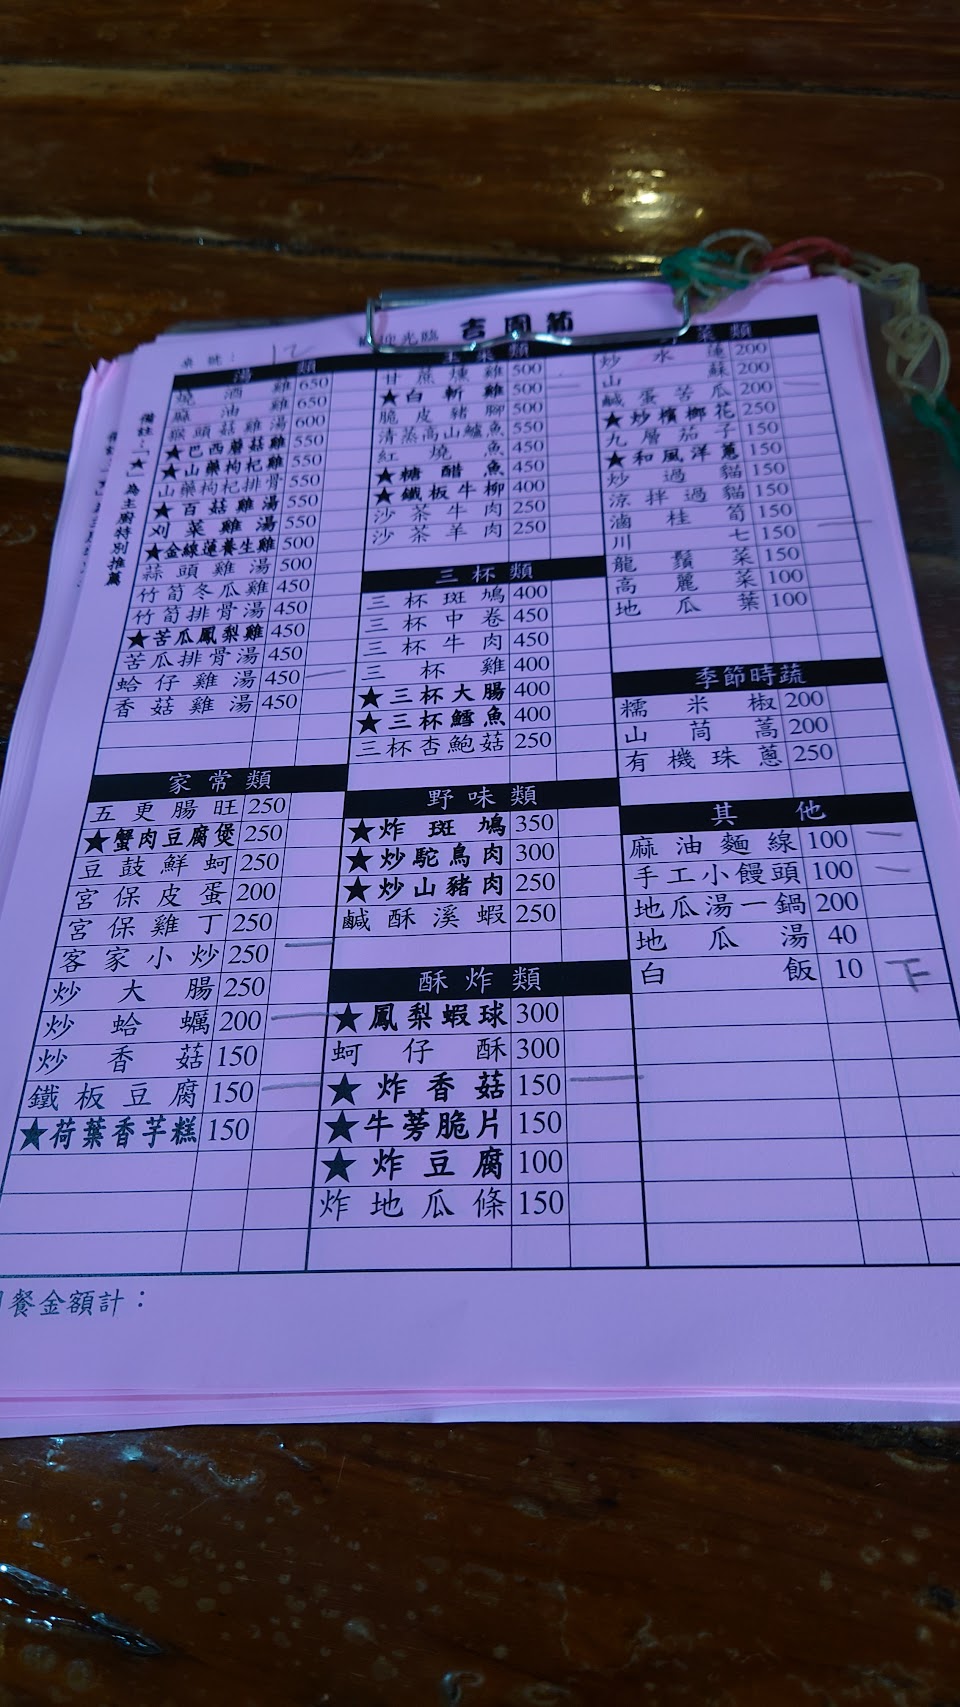 吉園圃
桌號： 12
光臨
備註：「★」為主廚特別推薦
湯類
燒酒雞 650
麻油雞 650
猴頭菇雞湯 600
★巴西蘑菇雞 550
★山藥枸杞雞 550
山藥枸杞排骨 550
★百菇雞湯 550
刈菜雞湯 550
★金線蓮養生雞 500
蒜頭雞湯 500
竹筍冬瓜雞 450
竹筍排骨湯 450
★苦瓜鳳梨雞 450
苦瓜排骨湯 450
蛤仔雞湯 450 一
香菇雞湯 450
家常類
五更腸旺 250
★蟹肉豆腐煲 250
豆鼓鮮蚵 250
宮保皮蛋 200
宮保雞丁 250
客家小炒 250 一
炒大腸 250
炒蛤蠣 200 一
炒香菇 150
鐵板豆腐 150 一
★荷葉香芋糕 150
主菜類
甘蔗燻雞 500
★白斬雞 500 一
脆皮豬腳 500
清蒸高山鱸魚 550
紅燒魚 450
★糖醋魚 450
★鐵板牛柳 400
沙茶牛肉 250
沙茶羊肉 250
三杯類
三杯斑鳩 400
三杯中卷 450
三杯牛肉 450
三杯雞 400
★三杯大腸 400
★三杯鱈魚 400
三杯杏鮑菇 250
野味類
★炸斑鳩 350
★炒駝鳥肉 300
★炒山豬肉 250
鹹酥溪蝦 250
酥炸類
★鳳梨蝦球 300
蚵仔酥 300
★炸香菇 150 一
★牛蒡脆片 150
★炸豆腐 100
炸地瓜條 150
菜類
炒水蓮 200
山蘇 200 一
鹹蛋苦瓜 200
★炒檳榔花 250
九層茄子 150
★和風洋蔥 150
炒過貓 150
涼拌過貓 150
滷桂筍 150 一
川七 150
龍鬚菜 150
高麗菜 100
地瓜葉 100
季節時蔬
糯米椒 200
山茼蒿 200
有機珠蔥 250
其他
麻油麵線 100 一
手工小饅頭 100 一
地瓜湯一鍋 200
地瓜湯 40
白飯 10 下
餐金額計：